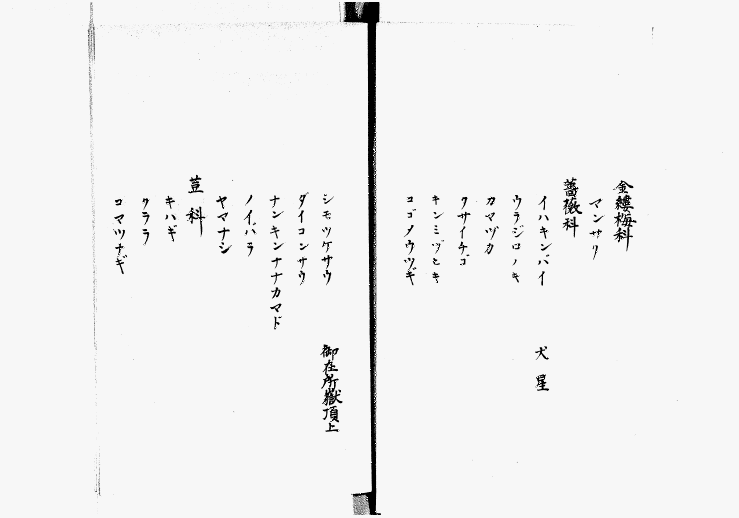 金縷梅科
マンサク
薔薇科
イハキンバイ 犬星
ウラジロノキ
カマヅカ
クサイチゴ
キンミヅヒキ
コゴメウツギ
シモツケサウ 御在所嶽頂上
ダイコンサウ
ナンキンナナカマド
ノイバラ
ヤマナシ
荳科
キハギ
クララ
コマツナギ